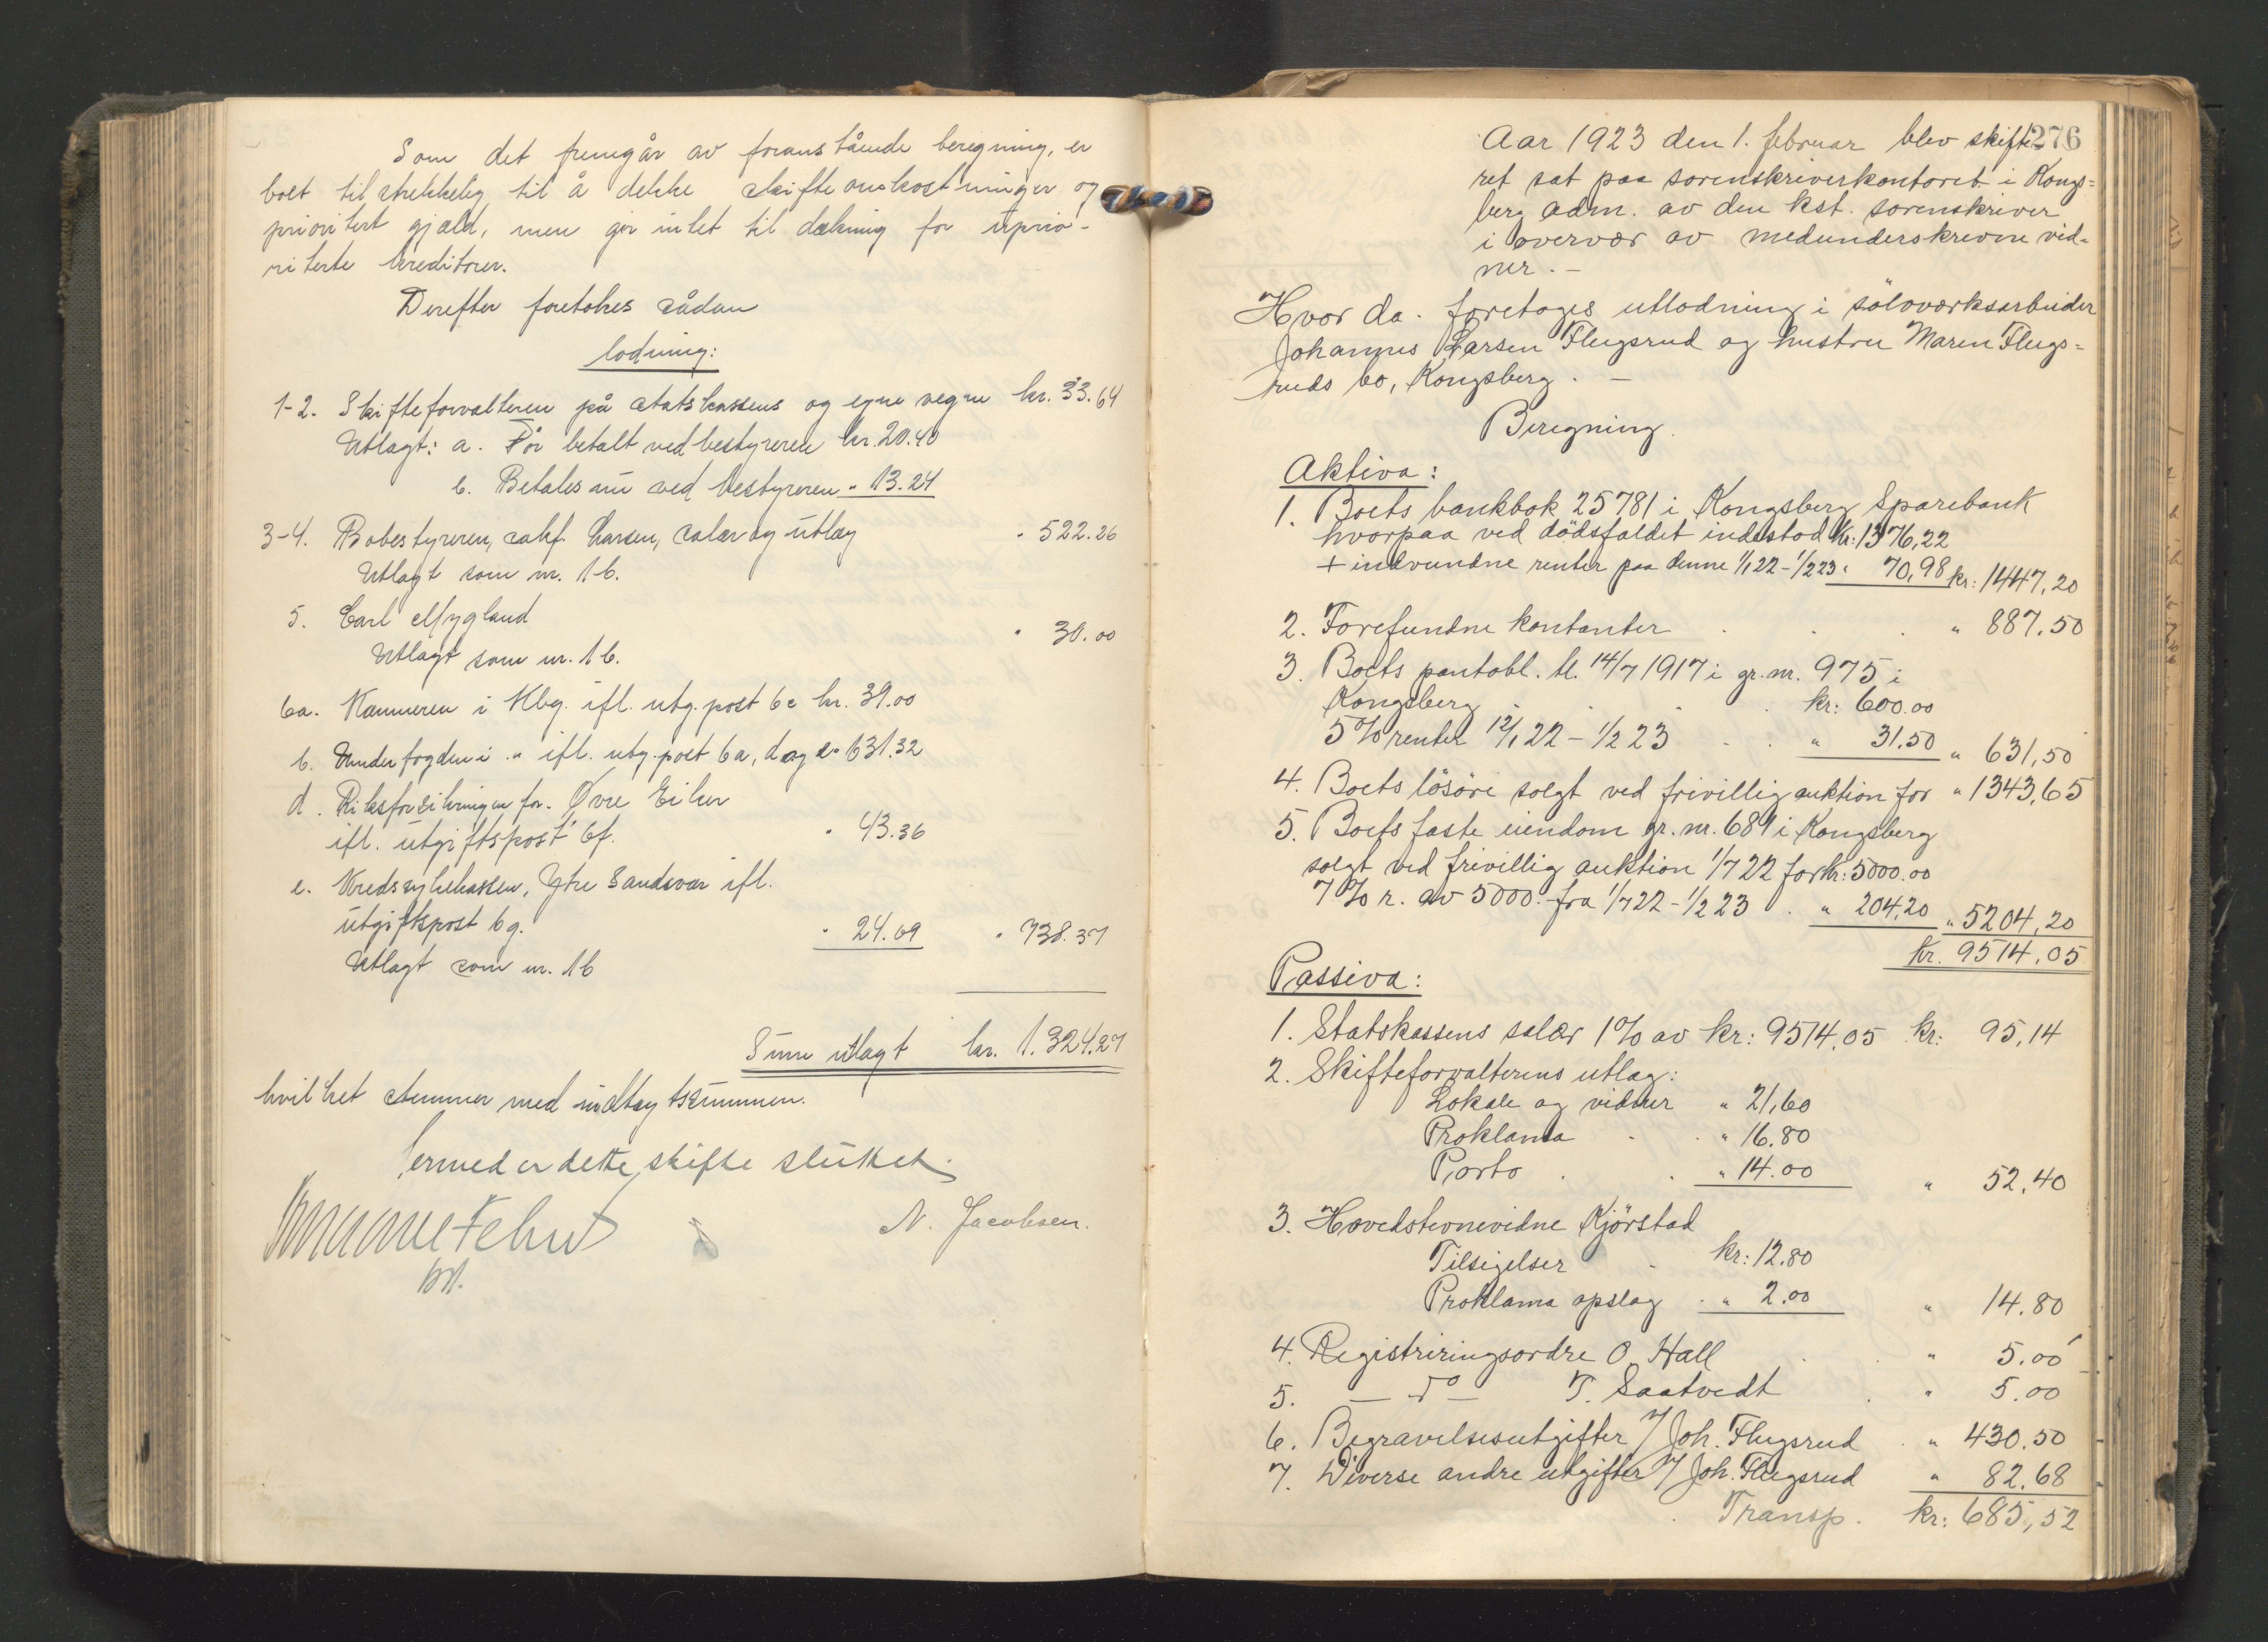 Som det fremgår av foranstående beregning, er
boet tilstrekkelig til å dekke skifteomkostninger og
prioritert gjæld, men gir intet til dækning for uprio-
riterte kreditorer.
Derefter foretokes sådan
lodning:
1-2. Skifteforvalteren på statskassens og egne vegne kr. 33.64
Utlagt: a. Før betalt ved bestyreren kr. 20.40
b. Betales nu ved bestyreren " 13.24
3-4. Bobestyreren, sakf. Larsen, salær og utlæg " 522.26
Utlagt som nr. 1 b.
5. Carl Mygland " 30.00
Utlagt som nr. 1 b.
6a. Kæmneren i Kbg. ifl. utg. post 6 c kr. 39.00
b. Underfogden i " ifl. utg. post 6 a, d og e " 631.32
d. Riksforsikringen for Øvre Eiker
ifl. utgiftspost 6f. " 43.36
e. Kredssykekassen, Ytre Sandsvær ifl.
utgiftspost 6 g. " 24.69 " 738.37
Utlagt som nr. 1 b
Sum utlagt kr. 1.324.27
hvilket stemmer med indtægtssummen.
Hermed er dette skifte sluttet.
N. Jacobsen.
276
Aar 1923 den 1. februar blev skifte-
ret sat paa sorenskriverkontoret i Kongs=
berg adm. av den kst. sorenskriver
i overvær av medunderskrevne vid-
ner. -
Hvor da foretoges utlodning i sölvverksarbeider
Johannes Larsen Flugsrud og hustru Maren Flugs=
ruds bo, Kongsberg. -
Beregning.
Aktiva:
1. Boets bankbok 25781 i Kongsberg Sparebank
hvorpaa ved dödsfaldet indestod kr: 1376,22
+ indvundne renter paa denne 1/1 22 - 1/2 23 " 70,98 kr: 1447,20
2. Forefundne kontanter . . . " 887.50
3. Boets pantobl. tl. 14/7 1917 i gr. nr. 975 i
Kongsberg . . . kr: 600.00
5 % renter 12/1 22 - 1/2 23 . . " 31.50 " 631,50
4. Boets lösöre solgt ved frivillig auktion for " 1343,65
5. Boets faste eiendom gr. nr. 681 i Kongsberg
solgt ved frivillig auktion 1/7 22 for kr: 5000.00
7 % r. av 5000.- fra 1/7 22 - 1/2 23 . " 204,20 " 5204,20
kr. 9514,05
Passiva:
1. Statskassens salær 1 % av kr: 9514,05 kr: 95,14
2. Skifteforvalterens utlæg:
Lokale og vidner " 21,60
Proklama . . " 16.80
Porto . . " 14.00 " 52,40
3. Hovedstevnevidne Kjörstad
Tilsigelser - kr: 12.80
Proklama opslag . " 2.00 " 14.80
4. Registreringsordre O. Hall . . " 5.00
5. — do — T. Saatvedt . " 5.00
6. Begravelsesutgifter / Joh. Flugsrud . " 430.50
7. Diverse andre utgifter / Joh. Flugsrud " 82.68
Transp. kr: 685,52